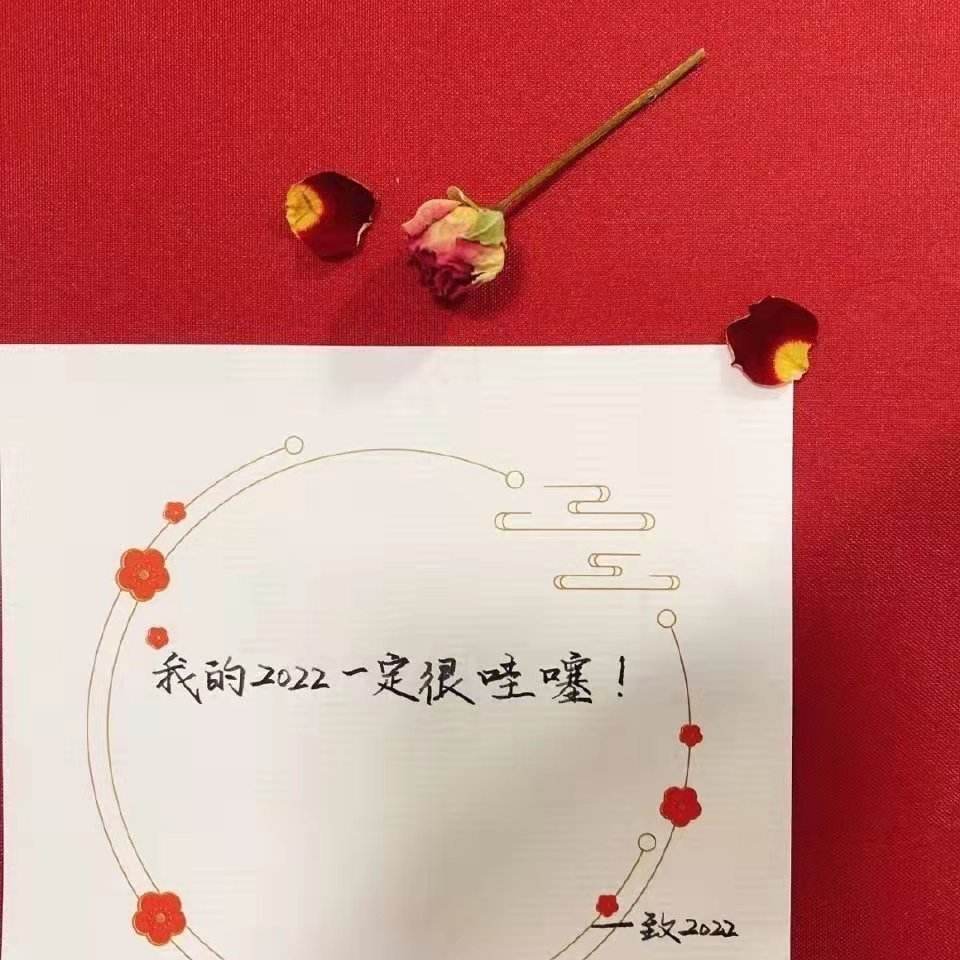 我的2022一定很哇噻！
一致2022